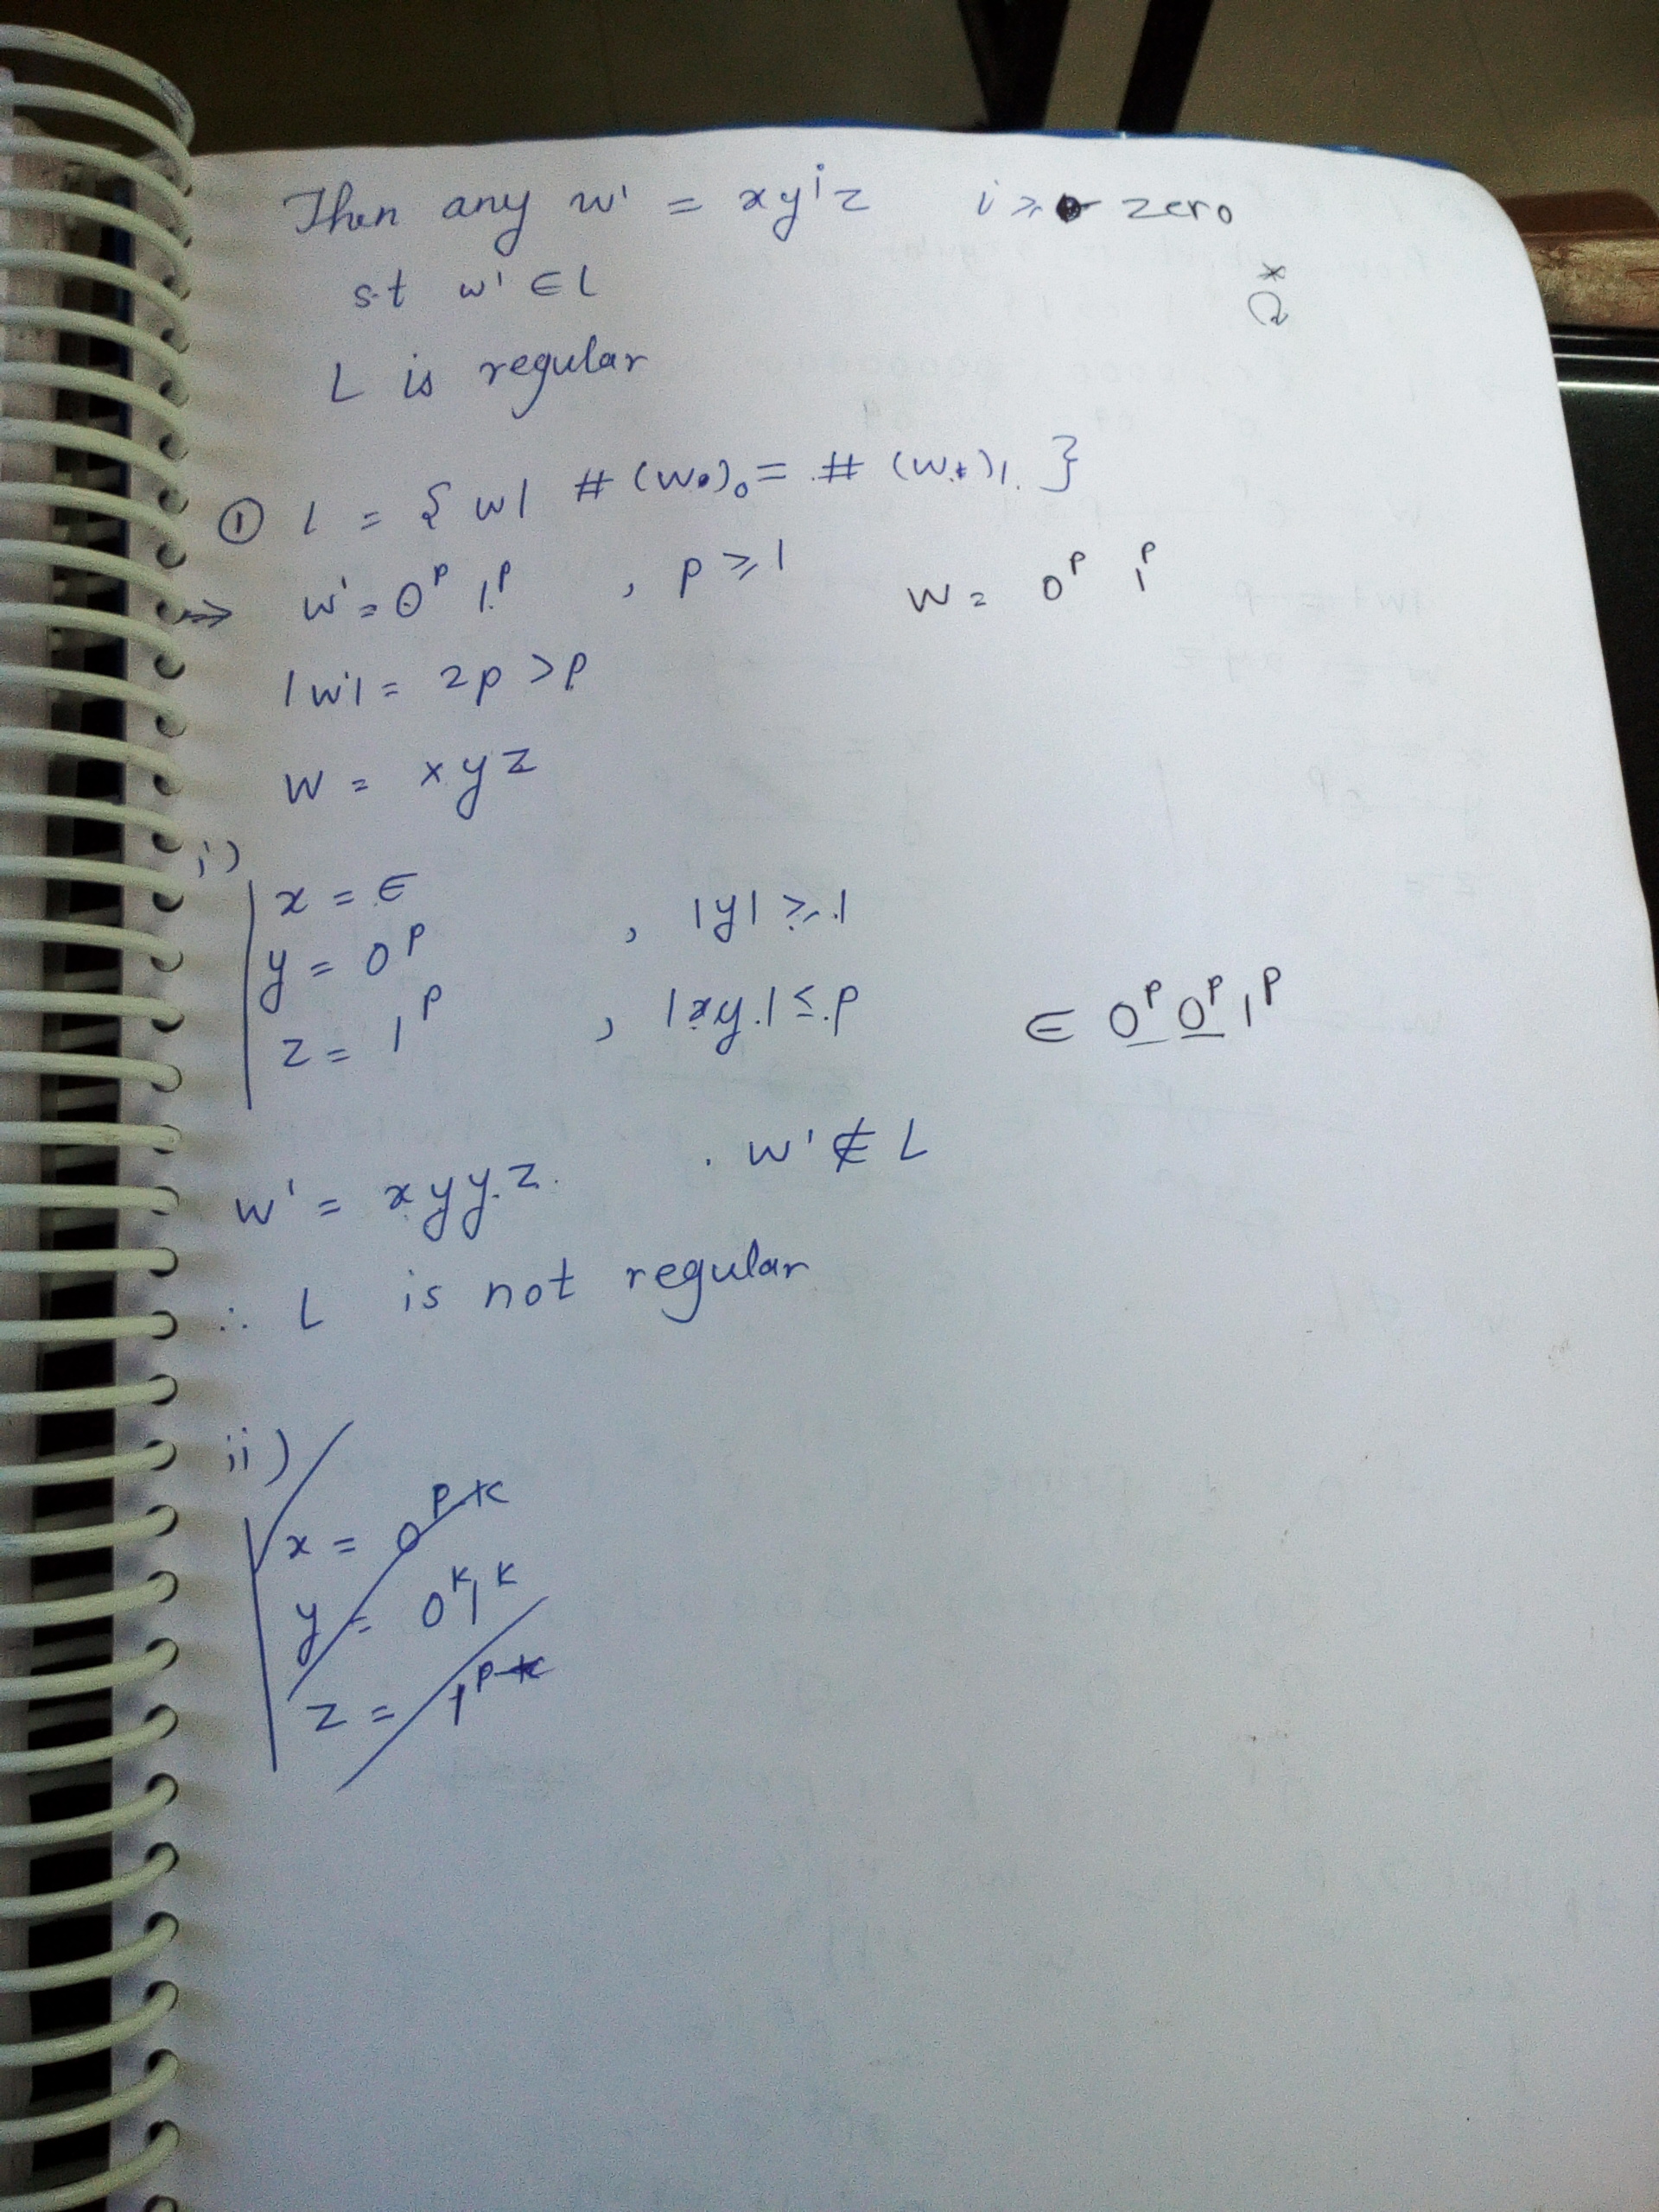 Then any w' = xyⁱz    i ≥ zero
s.t w' ∈ L
L is regular
① L = { w | # (w)₀ = # (w)₁ }
⇒ w' = 0ᵖ 1ᵖ , p ≥ 1    w = 0ᵖ 1ᵖ
|w'| = 2p > p
w = x y z
i)
x = ∈
y = 0ᵖ , |y| ≥ 1
z = 1ᵖ , |xy| ≤ p    ∈ 0ᵖ 0ᵖ 1ᵖ
w' = x y y z . w' ∉ L
∴ L is not regular
ii)
x = 0ᵖ⁻ᵏ
y = 0ᵏ1ᵏ
z = 1ᵖ⁻ᵏ